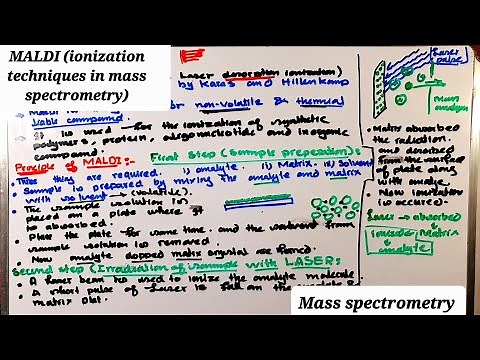 MALDI (ionization
techniques in mass
spectrometry)
Laser desorption ionization)
by Karas and Hillenkamp
for non-volatile & thermal
compound.
It is used for the ionization of synthetic
polymers, protein, oligonucleotide and inorganic
compound.
Principle of MALDI:-
First Step (Sample preparation):-
Three thing are required. i) analyte. ii) Matrix. iii) Solvent
Sample is prepared by mixing the analyte and matrix
with solvent (volatile).
The sample solution is
placed on a plate where it
is absorbed.
Place the plate for some time. and the solvent from
sample solution is removed.
Now analyte dopped matrix crystal are formed.
Second step (Irradiation of sample with LASER:
A laser beam is used to ionize the analyte molecule.
A short pulse of laser is fall on the
matrix plat.
Laser
pulse
Matrix absorbed
the radiation.
and desorbed
from the surface
of plate along
with analyte.
Now ionization
is occured.
Laser → absorbed
ionized matrix
analyte
Mass spectrometry